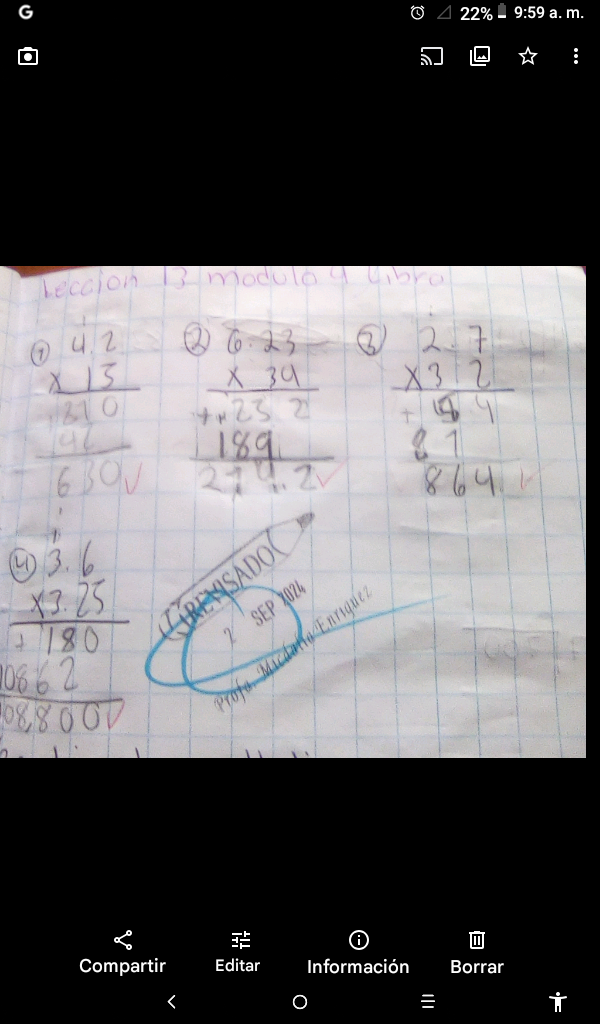 G
22% 9:59 a. m.
Leccion 13 modulo 4 libro
1 4.2
x 15
+210
42
630 ✓
2 6.23
x 34
232
189
✓
3 2.7
x3 2
+ 54
81
864 ✓
4 3.6
x3.25
+ 180
10862
108,800 ✓
REVISADO
2 SEP 2024
Profa. Micdalia Enriquez
Compartir
Editar
Información
Borrar